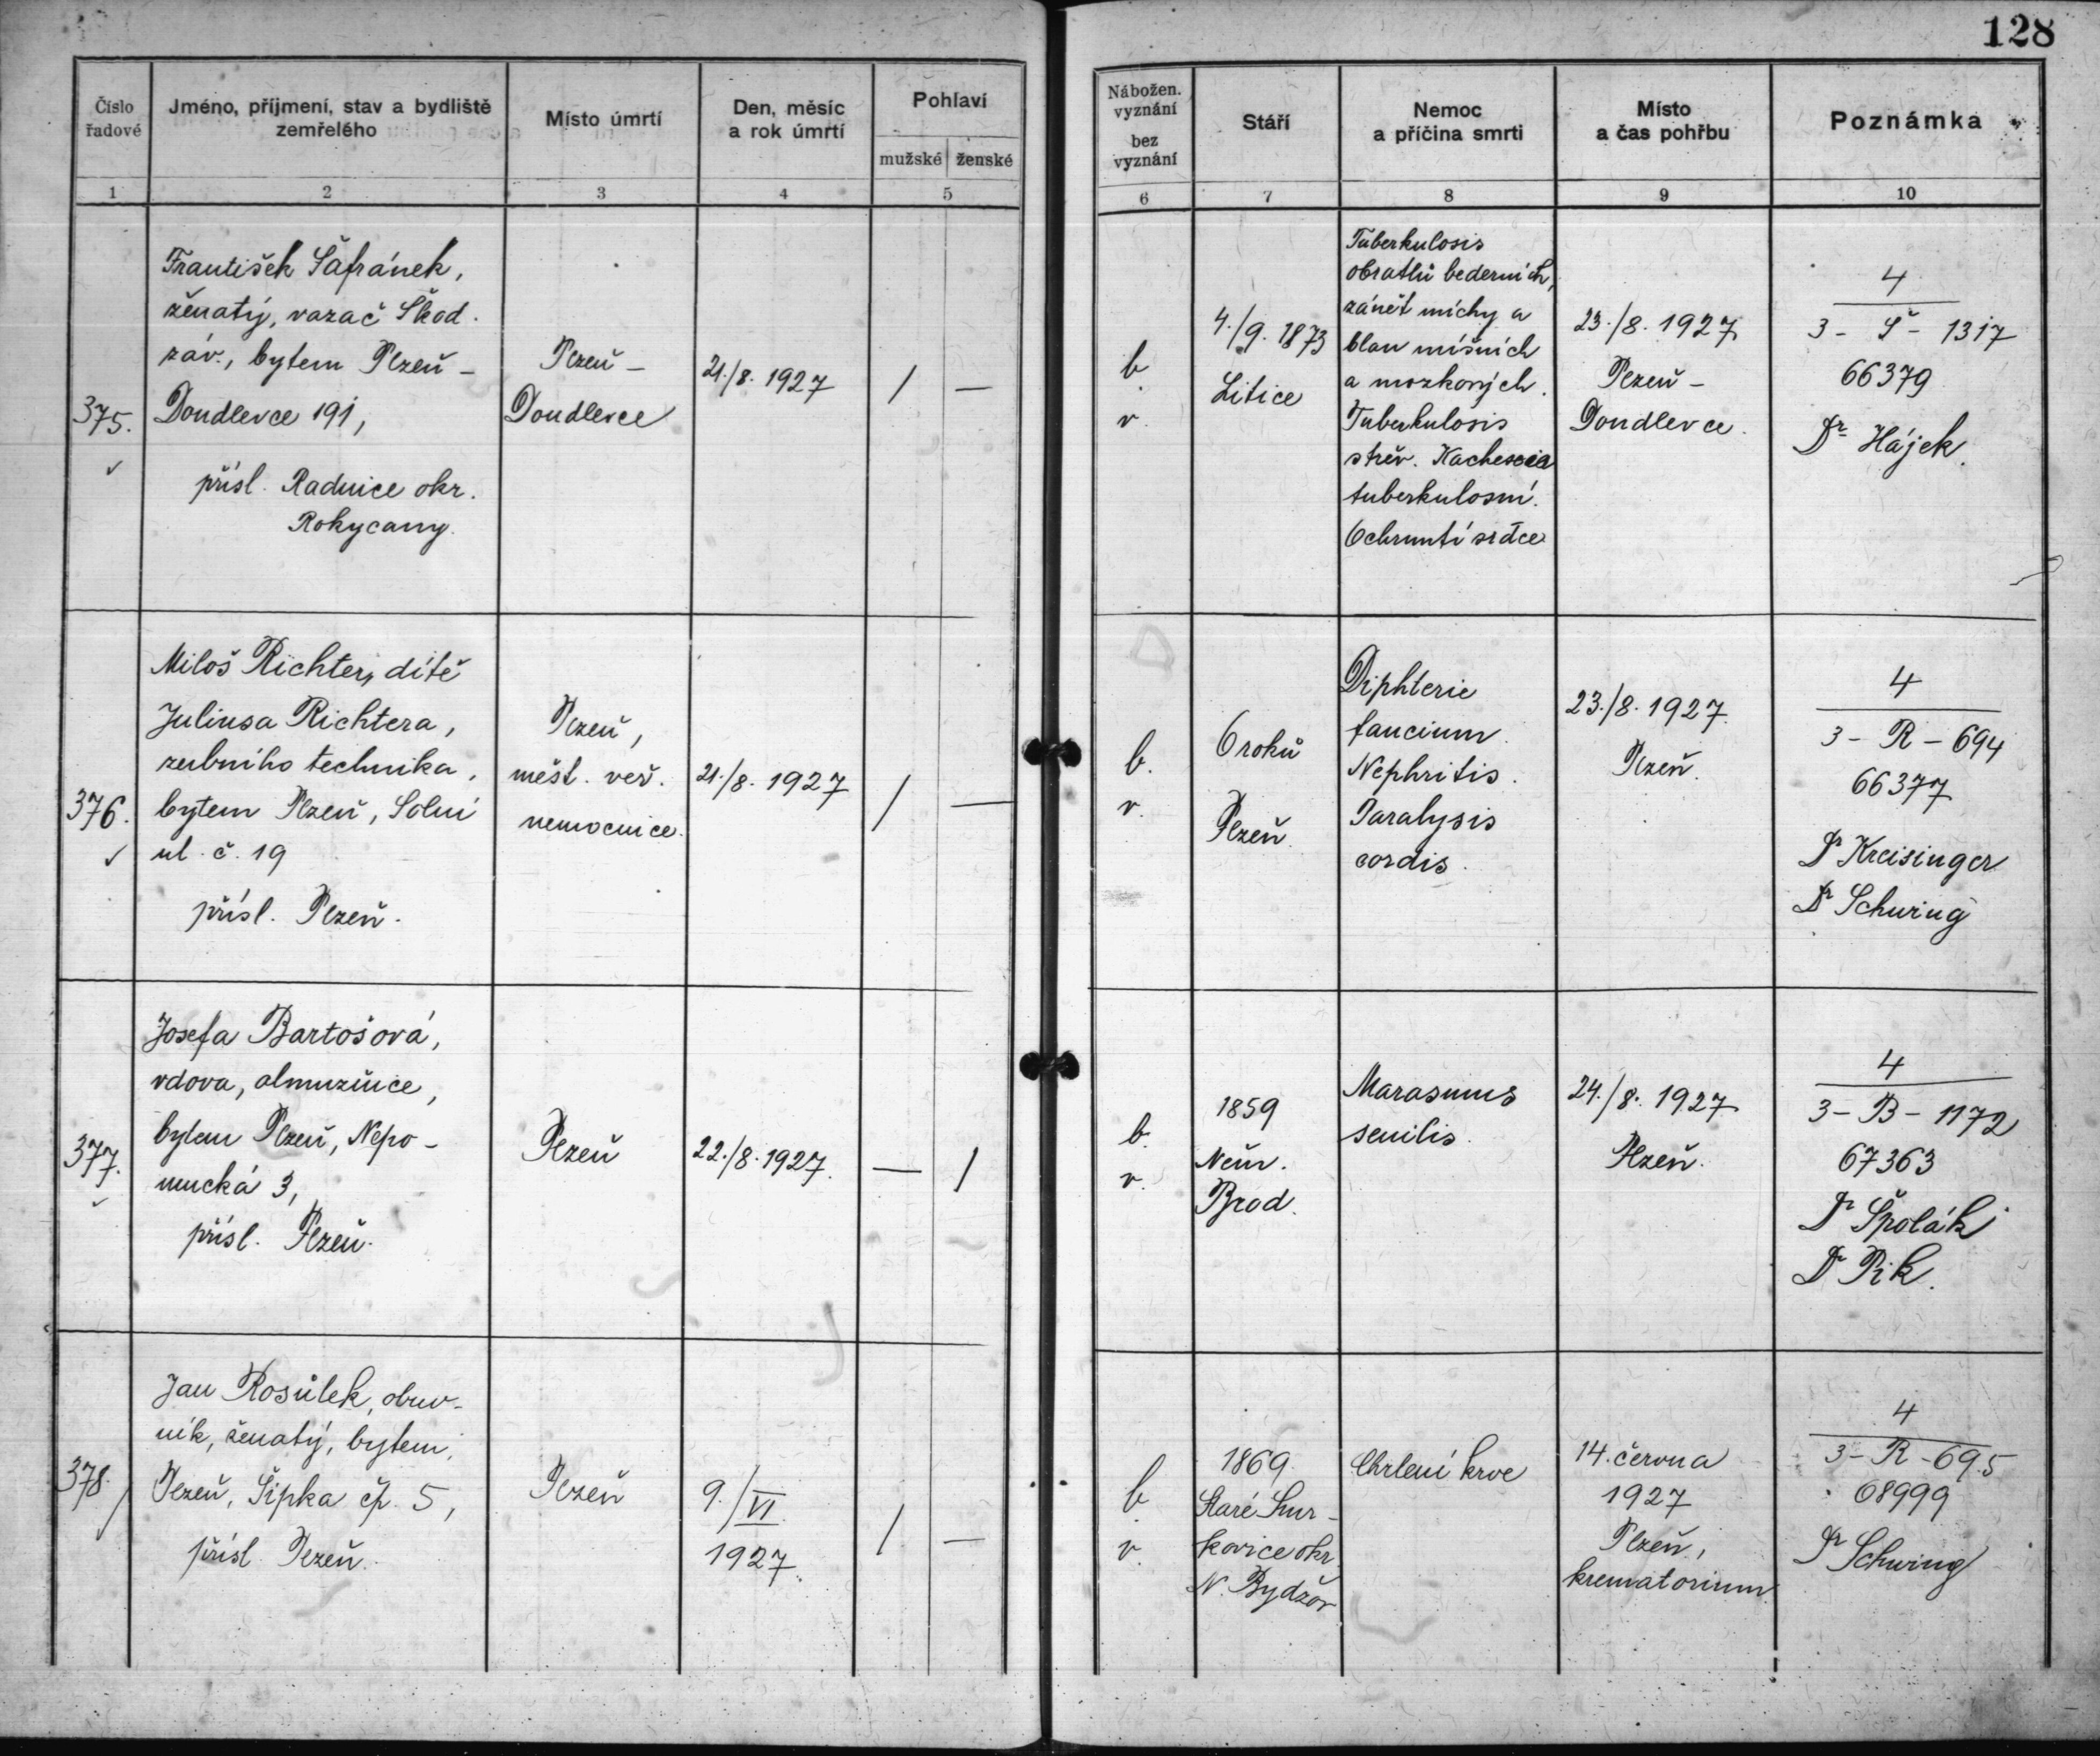 128
Číslo řadové
Jméno, příjmení, stav a bydliště zemřelého
Místo úmrtí
Den, měsíc a rok úmrtí
Pohlaví
mužské
ženské
Nábožen. vyznání
bez vyznání
Stáří
Nemoc a příčina smrti
Místo a čas pohřbu
Poznámka
1
2
3
4
5
6
7
8
9
10
375.
František Šafránek,
ženatý, vazač Škod.
záv., bytem Plzeň -
Doudlevce 191,
přísl. Radnice okr.
Rokycany.
Plzeň -
Doudlevce
21./8. 1927
/
—
b.
v.
4./9. 1873
Litice
Tuberkulosis
obratlů bederních,
zánět míchy a
blan míšních
a mozkových.
Tuberkulosis
střev. Kachexia
tuberkulosní.
Ochrnutí srdce
23./8. 1927
Plzeň -
Doudlevce.
4
3 - Š - 1317
66379
Dr Hájek.
376.
Miloš Richter, dítě
Juliusa Richtera,
zubního technika,
bytem Plzeň, Solní
ul. č. 19
přísl. Plzeň.
Plzeň,
měst. veř.
nemocnice.
21./8. 1927
/
—
b.
v.
6 roků
Plzeň.
Diphterie
faucium.
Nephritis.
Paralysis
cordis.
23./8. 1927.
Plzeň.
4
3 - R - 694
66377
Dr Kreisinger
Dr Schwing
377.
Josefa Bartošová,
vdova, almužnice,
bytem Plzeň, Nepo-
mucká 3,
přísl. Plzeň.
Plzeň
22./8. 1927.
—
/
b.
v.
1859
Něm.
Brod.
Marasmus
senilis.
24./8. 1927
Plzeň.
4
3 - B - 1172
67363
Dr Špolák
Dr Pik.
378.
Jan Rosůlek, obuv-
ník, ženatý, bytem
Plzeň, Šipka čp. 5,
přísl. Plzeň.
Plzeň
9./VI.
1927.
/
—
b.
v.
1869.
Staré Smr-
kovice okr
N. Bydžov
Chrlení krve
14. června
1927
Plzeň,
krematorium.
4
3 - R - 695
68999
Dr Schwing